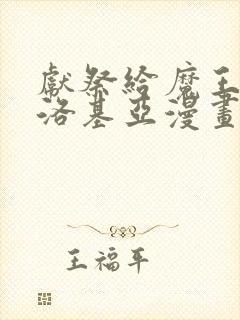 獻祭給魔王
洛基亞漫畫
王福平